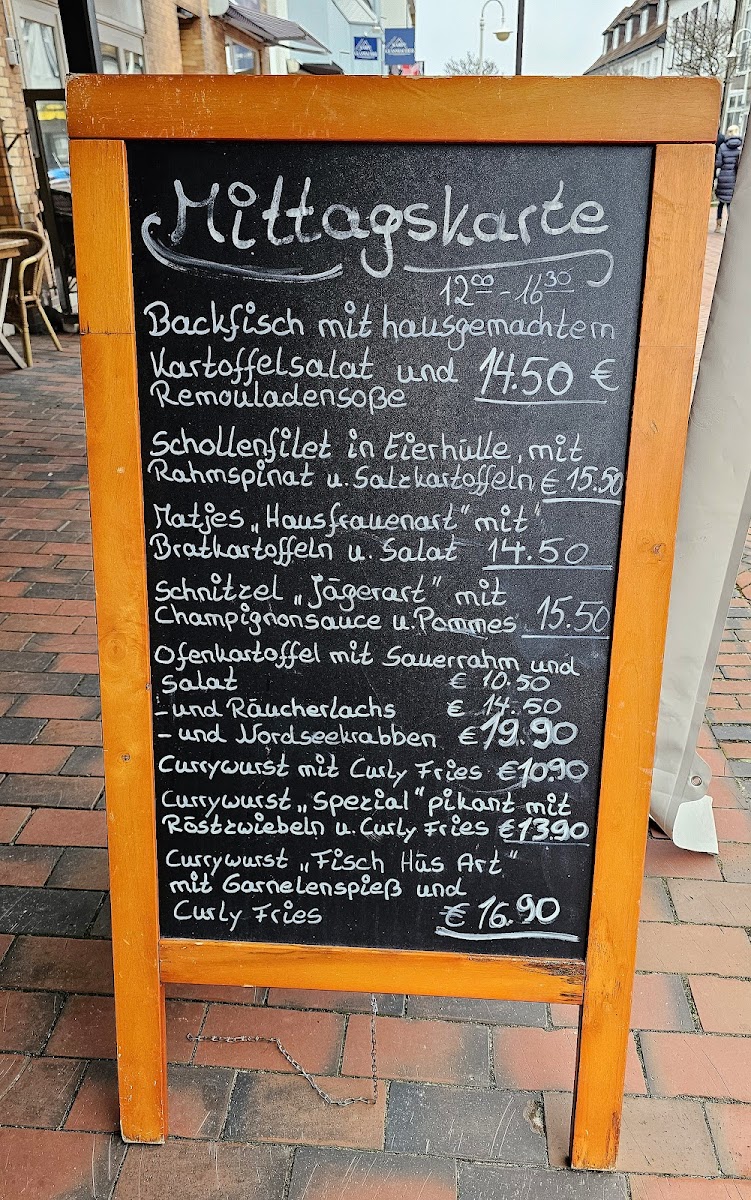 Mittagskarte
12⁰⁰ - 16³⁰
Backfisch mit hausgemachtem
Kartoffelsalat und 14.50 €
Remouladensoße
Schollenfilet in Eierhülle, mit
Rahmspinat u. Salzkartoffeln € 15.50
Matjes „Hausfrauenart" mit
Bratkartoffeln u. Salat 14.50
Schnitzel „Jägerart" mit
Champignonsauce u. Pommes 15.50
Ofenkartoffel mit Sauerrahm und
Salat € 10.50
- und Räucherlachs € 14.50
- und Nordseekrabben € 19.90
Currywurst mit Curly Fries € 10.90
Currywurst „Spezial" pikant mit
Röstzwiebeln u. Curly Fries € 13.90
Currywurst „Fisch Hüs Art"
mit Garnelenspieß und
Curly Fries € 16.90